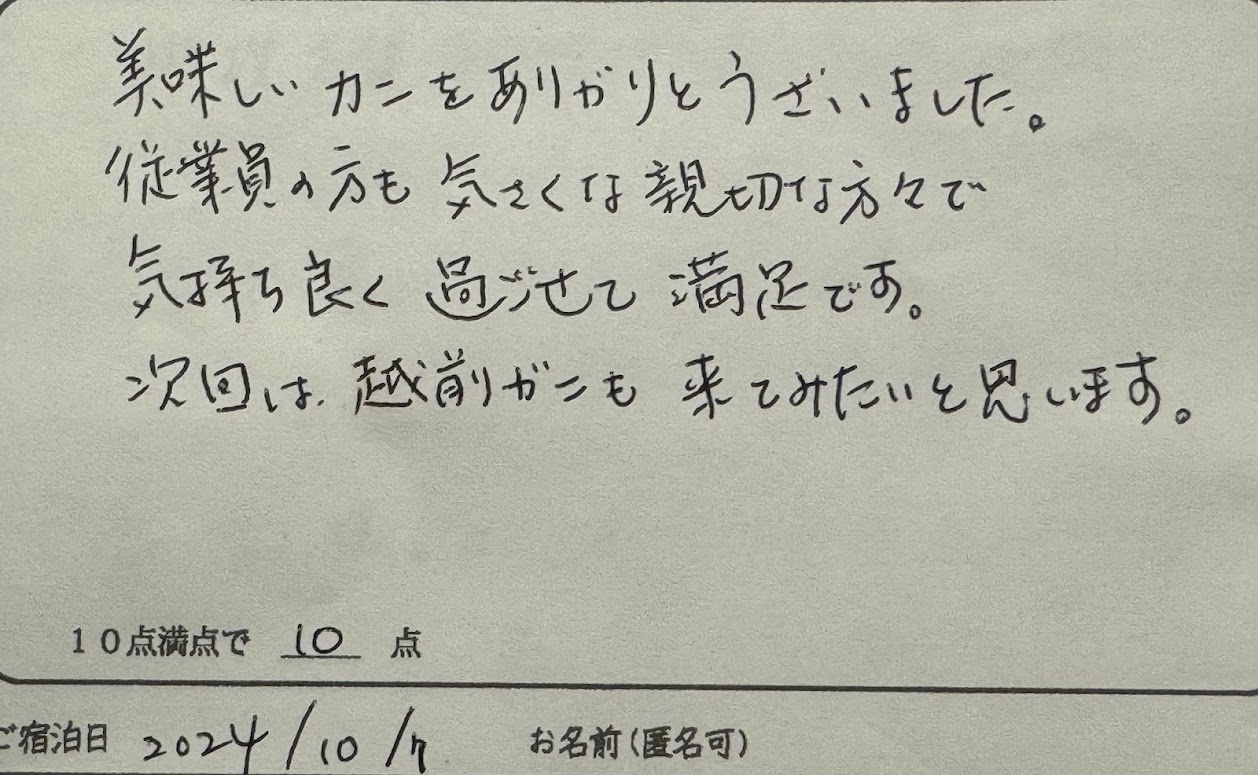 美味しいカニをありがりとうざいました。
従業員の方も気さくな親切な方々で
気持ち良く過ごせて満足です。
次回は、越前ガニも来てみたいと思います。
10点満点で 10 点
ご宿泊日 2024/10/7 お名前(匿名可)